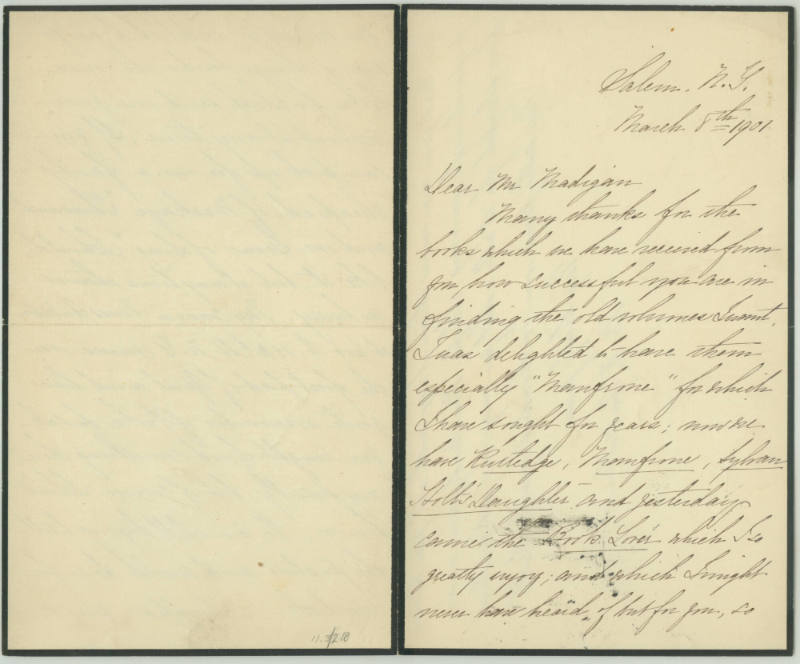 Salem. N.Y.
March 8th 1901
Dear Mr Madigan
Many thanks for the
books which we have received from
you how successful you are in
finding the old volumes I want.
I was delighted to have them
especially "Manfrone" for which
I have sought for years; now we
have Rutledge, Manfrone, Sylvan
Holt's Daughter and yesterday
came the Book Lover which I so
greatly enjoy; and which I might
never have heard of but for you, so